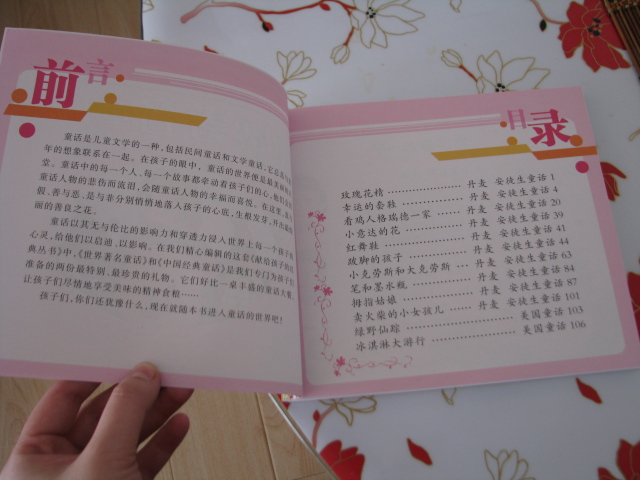 前言
童话是儿童文学的一种,包括民间童话和文学童话,它总是与
年的想象联系在一起。在孩子的眼中,童话的世界便是最美丽的
堂。童话中的每一个人、每一个故事都牵动着孩子们的心,他们会
童话人物的悲伤而流泪,会随童话人物的幸福而喜悦。在这里,真
假、善与恶、是与非分别悄悄地落入孩子的心底,生根发芽,并开出
而的善良之花。
童话以其无与伦比的影响力和穿透力浸入世界上每一个孩子
心灵,给他们以启迪、以影响。在我们精心编辑的这套《献给孩子的
典丛书》中,《世界著名童话》和《中国经典童话》是我们专门为孩子们
准备的两份最特别、最珍贵的礼物。它们好比一桌丰盛的童话大餐,
让孩子们尽情地享受美味的精神食粮……
孩子们,你们还犹豫什么,现在就随本书进入童话的世界吧!
目录
玫瑰花精 丹麦 安徒生童话 1
幸运的套鞋 丹麦 安徒生童话 4
看鸡人格瑞德一家 丹麦 安徒生童话 20
小意达的花 丹麦 安徒生童话 39
红舞鞋 丹麦 安徒生童话 41
跛脚的孩子 丹麦 安徒生童话 44
小克劳斯和大克劳斯 丹麦 安徒生童话 63
笔和墨水瓶 丹麦 安徒生童话 84
拇指姑娘 丹麦 安徒生童话 87
卖火柴的小女孩儿 丹麦 安徒生童话 101
绿野仙踪 美国童话 103
冰淇淋大游行 美国童话 106